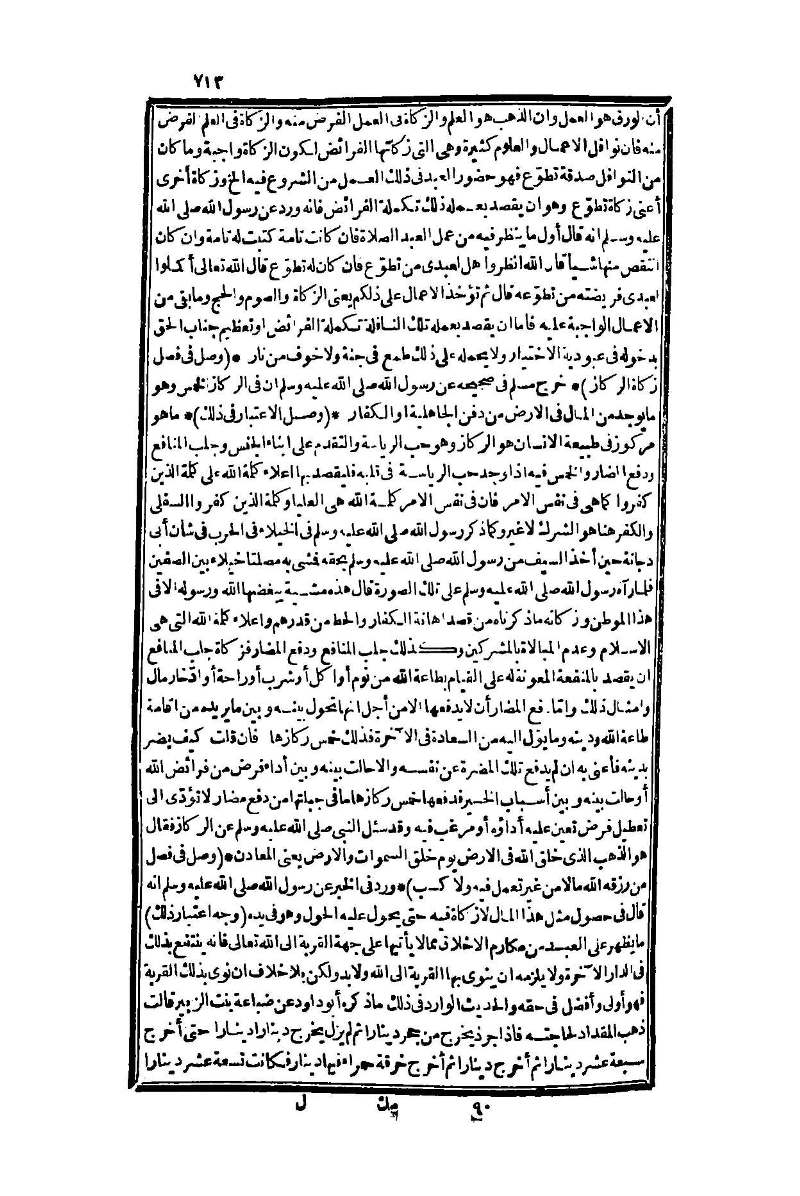 ٧١٣
أن الورق هو العمل وان الذهب هو العلم والزكاة فى العمل الفرض منه والزكاة فى العلم الفرض
منه فان نوافل الاعمال والعلوم كثيرة وهى التى زكاتها الفرائض لكون الزكاة واجبة وما كان
من النوافل صدقة تطوّع فهو حضور العبد فى ذلك العمل من الشروع فيه الخ وزكاة أخرى
أعنى زكاة تطوّع وهو ان يقصد بعمله ذلك تكملة الفرائض فانه ورد عن رسول الله صلى الله
عليه وسلم انه قال أول ما ينظر فيه من عمل العبد الصلاة فان كانت تامة كتبت له تامة وان كان
انتقص منها شيأ قال الله انظروا هل لعبدى من تطوّع فان كان له تطوّع قال الله تعالى أكملوا
لعبدى فريضته من تطوعه قال ثم تؤخذ الاعمال على ذلكم يعنى الزكاة والصوم والحج وما بقى من
الاعمال الواجبة عليه فاما ان يقصد بعمله تلك النافلة تكملة الفرائض او تعظيم جناب الحق
بدخوله فى عبودية الاختيار ولا يحمله على ذلك طمع فى جنة ولا خوف من نار *(وصل فى فصل
زكاة الركاز)* خرج مسلم فى صحيحه عن رسول الله صلى الله عليه وسلم ان فى الركاز الخمس وهو
ما يوجد من المال فى الارض من دفن الجاهلية او الكفار *(وصل الاعتبار فى ذلك)* ما هو
مركوز فى طبيعة الانسان هو الركاز وهو حب الرياسة والتقدم على ابناء الجنس وجلب المنافع
ودفع المضار والخمس فيه اذا وجد حب الرياسة فى قلبه فليقصد بها اعلاء كلمة الله على كلمة الذين
كفروا كما هى فى نفس الامر فان فى نفس الامر كلمة الله هى العليا وكلمة الذين كفروا السفلى
والكفر هنا هو الشرك لا غير وكما ذكر رسول الله صلى الله عليه وسلم فى الخيلاء فى الحرب فى شأن أبى
دجانة حين أخذ السيف من رسول الله صلى الله عليه وسلم بحقه فمشى به مصلتا خيلاء بين الصفين
فلما رآه رسول الله صلى الله عليه وسلم على تلك الصورة قال هذه مشية يبغضها الله ورسوله الا فى
هذا الموطن وزكاته ما ذكرناه من قصد اهانة الكفار والحط من قدرهم واعلاء كلمة الله التى هى
الاسلام وعدم المبالاة بالمشركين وكذلك جلب المنافع ودفع المضار فزكاة جلب المنافع
ان يقصد بالمنفعة المعونة له على القيام بطاعة الله من نوم أو اكل أو شرب أو راحة أو ادّخار مال
وامثال ذلك واما دفع المضار أن لا يدفعها الا من أجل انها تحول بينه وبين ما يريده من اقامة
طاعة الله ودينه وما يؤل اليه من السعادة فى الآخرة فذلك خمس ركازها فان قلت كيف يضر
بدينه فأعنى به ان لم يدفع تلك المضرة عن نفسه والا حالت بينه وبين أداء فرض من فرائض الله
أو حالت بينه وبين أسباب الخير فدفعها خمس ركازها ما فى جبلتها من دفع مضار لا تؤدّى الى
تعطيل فرض تعين عليه أداؤه أو مرغب فيه وقد سئل النبى صلى الله عليه وسلم عن الركاز فقال
هو الذهب الذى خلق الله فى الارض يوم خلق السموات والارض يعنى المعادن *(وصل فى فصل
من رزقه الله مالا من غير تعمل فيه ولا كسب)* ورد فى الخبر عن رسول الله صلى الله عليه وسلم انه
قال فى حصول مثل هذا المال لا زكاة فيه حتى يحول عليه الحول وهو فى يده (وجه اعتبار ذلك)
ما يظهر على العبد من مكارم الاخلاق مما لا يأتيها على جهة القربة الى الله تعالى فانه ينتفع بذلك
فى الدار الآخرة ولا يلزمه ان ينوى بها القربة الى الله ولا بد ولكن بلا خلاف ان نوى بذلك القربة
فهو أولى وأفضل فى حقه والحديث الوارد فى ذلك ما ذكره أبو داود عن ضباعة بنت الزبير قالت
ذهب المقداد لحاجته فاذا جرذ يخرج من جحر دينارا ثم لم يزل يخرج دينارا دينارا حتى أخرج
سبعة عشر دينارا ثم أخرج دينارا ثم أخرج خرقة حمراء فيها دينار فكانت تسعة عشر دينارا
٩٠ مك ل